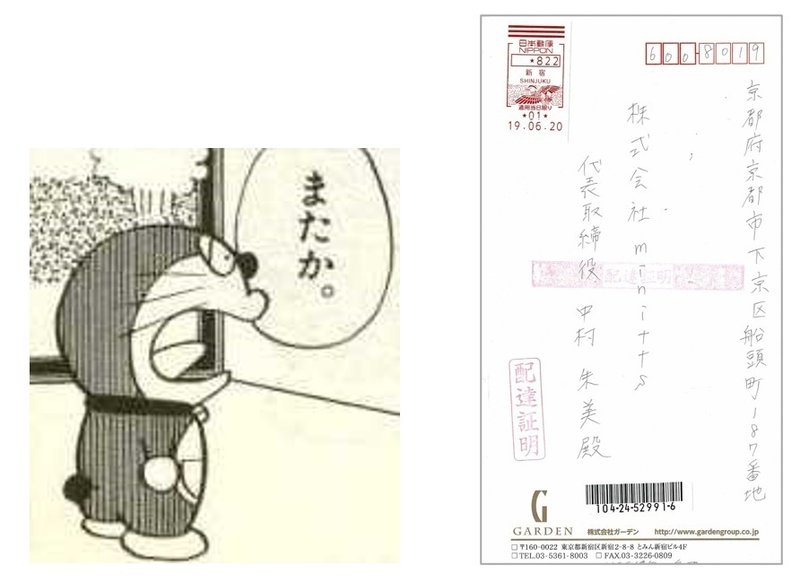 またか。
日本郵便
NIPPON
*822
新宿
SHINJUKU
*01*
19.06.20
600-8019
京都府京都市下京区船頭町187番地
株式会社minitts
代表取締役 中村 朱美 殿
配達証明
配達証明
104-24-52991-6
G
GARDEN 株式会社ガーデン http://www.gardengroup.co.jp
□〒160-0022 東京都新宿区新宿2-8-8 とみん新宿ビル4F
□TEL.03-5361-8003 □FAX.03-3226-0809